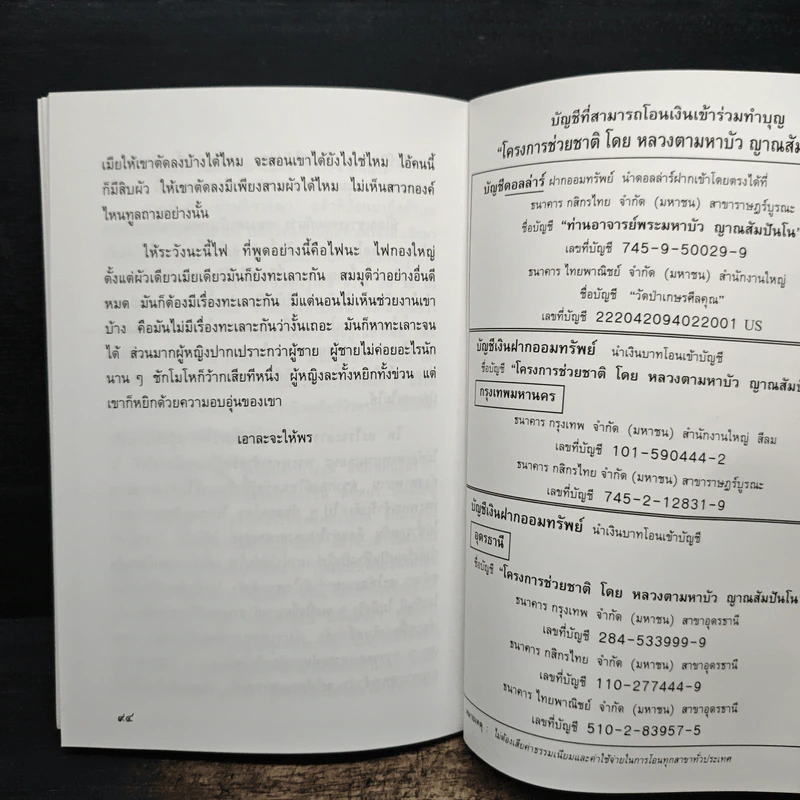 เมียให้เขาตัดลงบ้างได้ไหม จะสอนเขาได้ยังไงใช่ไหม ไอ้คนนี้
ก็มีสิบผัว ให้เขาตัดลงมีเพียงสามผัวได้ไหม ไม่เห็นสาวกองค์
ไหนทูลถามอย่างนั้น
ให้ระวังนะนี่ไฟ ที่พูดอย่างนี้คือไฟนะ ไฟกองใหญ่
ตั้งแต่ผัวเดียวเมียเดียวมันก็ยังทะเลาะกัน สมมุติว่าอย่างอื่นดี
หมด มันก็ต้องมีเรื่องทะเลาะกัน มีแต่นอนไม่เห็นช่วยงานเขา
บ้าง คือมันไม่มีเรื่องทะเลาะกันว่างั้นเถอะ มันก็หาทะเลาะจน
ได้ ส่วนมากผู้หญิงปากเปราะกว่าผู้ชาย ผู้ชายไม่ค่อยอะไรนัก
นาน ๆ ชักโมโหก็ว้ากเสียทีหนึ่ง ผู้หญิงละทั้งหยิกทั้งข่วน แต่
เขาก็หยิกด้วยความอบอุ่นของเขา
เอาละจะให้พร
๙๔
บัญชีที่สามารถโอนเงินเข้าร่วมทำบุญ
"โครงการช่วยชาติ โดย หลวงตามหาบัว ญาณสัม
บัญชีดอลล่าร์ ฝากออมทรัพย์ นำดอลล่าร์ฝากเข้าโดยตรงได้ที่
ธนาคาร กสิกรไทย จำกัด (มหาชน) สาขาราษฎร์บูรณะ
ชื่อบัญชี "ท่านอาจารย์พระมหาบัว ญาณสัมปันโน"
เลขที่บัญชี 745-9-50029-9
ธนาคาร ไทยพาณิชย์ จำกัด (มหาชน) สำนักงานใหญ่
ชื่อบัญชี "วัดป่าเกษรศีลคุณ"
เลขที่บัญชี 222042094022001 US
บัญชีเงินฝากออมทรัพย์ นำเงินบาทโอนเข้าบัญชี
ชื่อบัญชี "โครงการช่วยชาติ โดย หลวงตามหาบัว ญาณสัมปั
กรุงเทพมหานคร
ธนาคาร กรุงเทพ จำกัด (มหาชน) สำนักงานใหญ่ สีลม
เลขที่บัญชี 101-590444-2
ธนาคาร กสิกรไทย จำกัด (มหาชน) สาขาราษฎร์บูรณะ
เลขที่บัญชี 745-2-12831-9
บัญชีเงินฝากออมทรัพย์ นำเงินบาทโอนเข้าบัญชี
อุดรธานี
ชื่อบัญชี "โครงการช่วยชาติ โดย หลวงตามหาบัว ญาณสัมปันโน
ธนาคาร กรุงเทพ จำกัด (มหาชน) สาขาอุดรธานี
เลขที่บัญชี 284-533999-9
ธนาคาร กสิกรไทย จำกัด (มหาชน) สาขาอุดรธานี
เลขที่บัญชี 110-277444-9
ธนาคาร ไทยพาณิชย์ จำกัด (มหาชน) สาขาอุดรธานี
เลขที่บัญชี 510-2-83957-5
: ไม่ต้องเสียค่าธรรมเนียมและค่าใช้จ่ายในการโอนทุกสาขาทั่วประเทศ